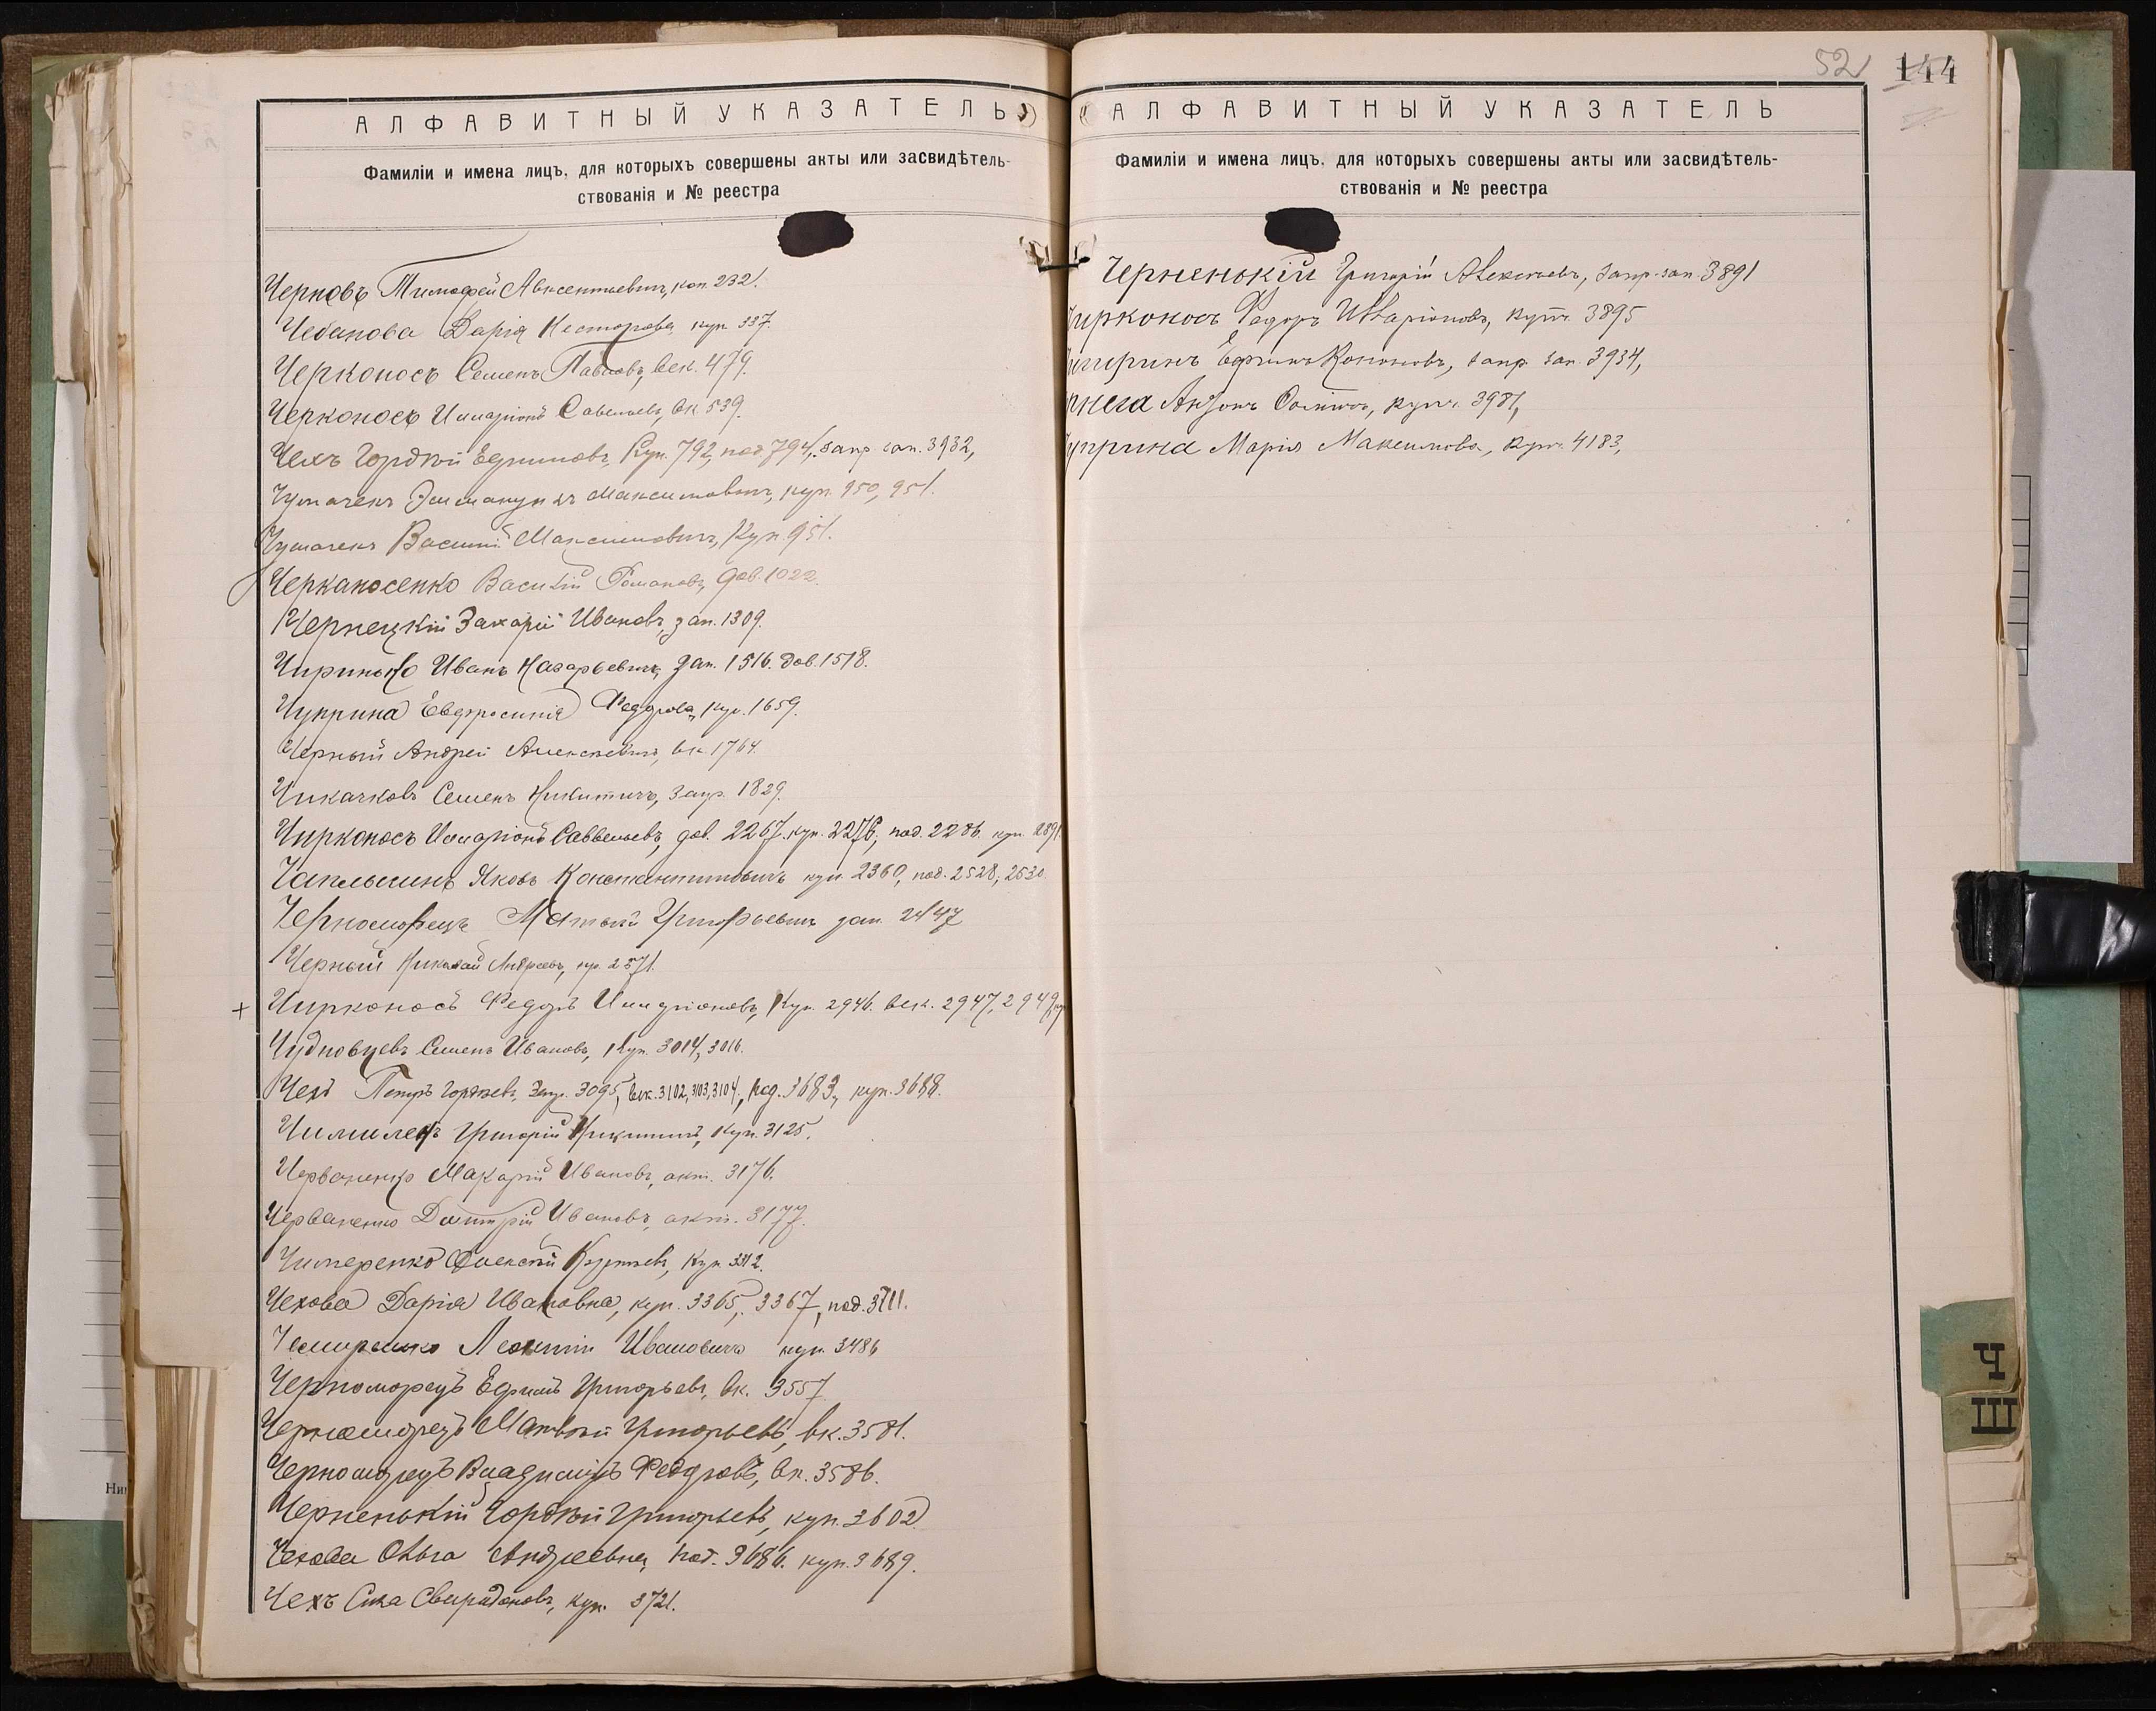 АЛФАВИТНЫЙ УКАЗАТЕЛЬ
Фамиліи и имена лицъ, для которыхъ совершены акты или засвидѣтель-
ствованія и № реестра
Черновъ Тимофей Авксентьевичъ, коп. 232.
Чебанова Дарія Несторова, куп. 337.
Черконосъ Семенъ Павловъ, век. 479.
Черконосъ Иларіонъ Савельевъ, вк 539.
Чехъ Гордѣй Ефимовъ, Куп. 792, под. 794, запр. зап. 3932,
Чумаченъ Эммануилъ Максимовичъ, куп. 950, 951.
Чумаченъ Василій Максимовичъ, Куп. 951.
Черканосенко Василій Романовъ, дов. 1022.
Чернецкій Захарій Ивановъ, зап. 1309.
Чиринько Иванъ Назарьевичъ, зап. 1516. дов. 1518.
Чуприна Евфросинія Федорова, куп. 1659.
Черный Андрей Алексѣевичъ, вк. 1764.
Чикачковъ Семенъ Никитичъ, запр. 1829.
Чирконосъ Иларіонъ Саввельевъ, дов. 2267. куп. 2276, под. 2286. куп. 2891
Чаплыгинъ Яковъ Константиновичъ куп. 2360, под. 2528, 2530
Черноморецъ Матвѣй Григорьевичъ зап. 2447
Черный Николай Андреевъ, куп. 2571.
+ Чирконосъ Федоръ Иларіоновъ, Куп. 2946. век. 2947, 2949
Чудновцевъ Семенъ Ивановъ, Куп. 3014, 3016.
Чехъ Петръ Гордѣевъ, Запр. 3095, век. 3102, 3103, 3104, под. 3683, куп. 3688.
Григорій Никитинъ, куп. 3125.
Червоненко Макарій Ивановъ, акт. 3176.
Червоненко Дмитрій Ивановъ, акт. 3177.
Чимеренко Алексѣй куп. 3312.
Чехова Дарія Ивановна, куп. 3365, 3367, под. 3711.
Леонтій Ивановичъ куп. 3486
Черноморецъ Ефимъ Григорьевъ, вк. 3557
Черноморецъ Матвѣй Григорьевъ, вк. 3581.
Черноморецъ Владиміръ Федоровъ, вк. 3586.
Черненькій Гордѣй Григорьевъ, куп. 3602
Чехова Ольга Андреевна, под. 3686. куп. 3689.
Чехъ Сила Свиридоновъ, куп. 3721.
52
144
АЛФАВИТНЫЙ УКАЗАТЕЛЬ
Фамиліи и имена лицъ, для которыхъ совершены акты или засвидѣтель-
ствованія и № реестра
Черненькій Григорій Алексѣевъ, запр. зап. 3891
Чирконосъ Федоръ Илларіоновъ, купч. 3895
Ефимъ Кононовъ, запр. зап. 3934,
купч. 3981,
Чуприна Марія Максимова, купч. 4183,
Ч
Ш